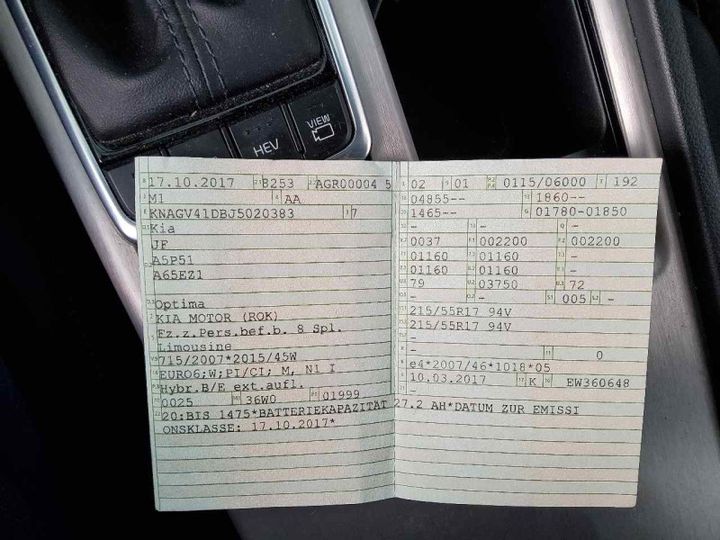 VIEW
HEV
17.10.2017 8253 AGR00004 5
M1 AA
KNAGV41DBJ5020383 7
Kia
JF
A5P51
A65EZ1
Optima
KIA MOTOR (ROK)
Fz.z.Pers.bef.b. 8 Spl.
Limousine
715/2007*2015/45W
EURO6;W;PI/CI; M, N1 I
Hybr.B/E ext.aufl.
0025 36W0 01999
20:BIS 1475*BATTERIEKAPAZITÄT 27.2 AH*DATUM ZUR EMISSI
ONSKLASSE: 17.10.2017*
02 01 0115/06000 192
04855-- 1860--
1465-- 01780-01850
- - -
0037 002200 002200
01160 01160 -
01160 01160 -
79 03750 72
- - 005 -
215/55R17 94V
215/55R17 94V
-
- 0
e4*2007/46*1018*05
10.03.2017 K EW360648
-